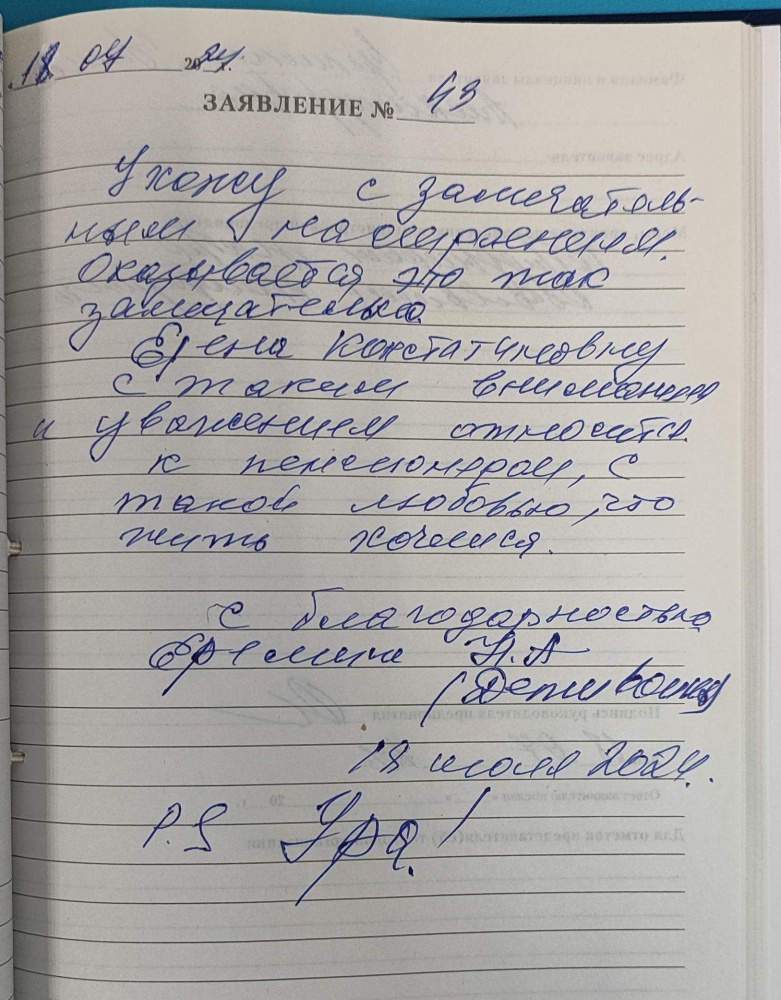 18. 07 2024 г.
ЗАЯВЛЕНИЕ № 43
Ухожу с замечатель-
ным настроением.
Оказывается это так
замечательно.
Елена Констатиновну
с таким вниманием
и уважением относится
к пенсионерам, с
такой любовью, что
жить хочется.
С благодарностью
Еремина Н.А
(Дети войны)
18 июля 2024.
P.S Ура!